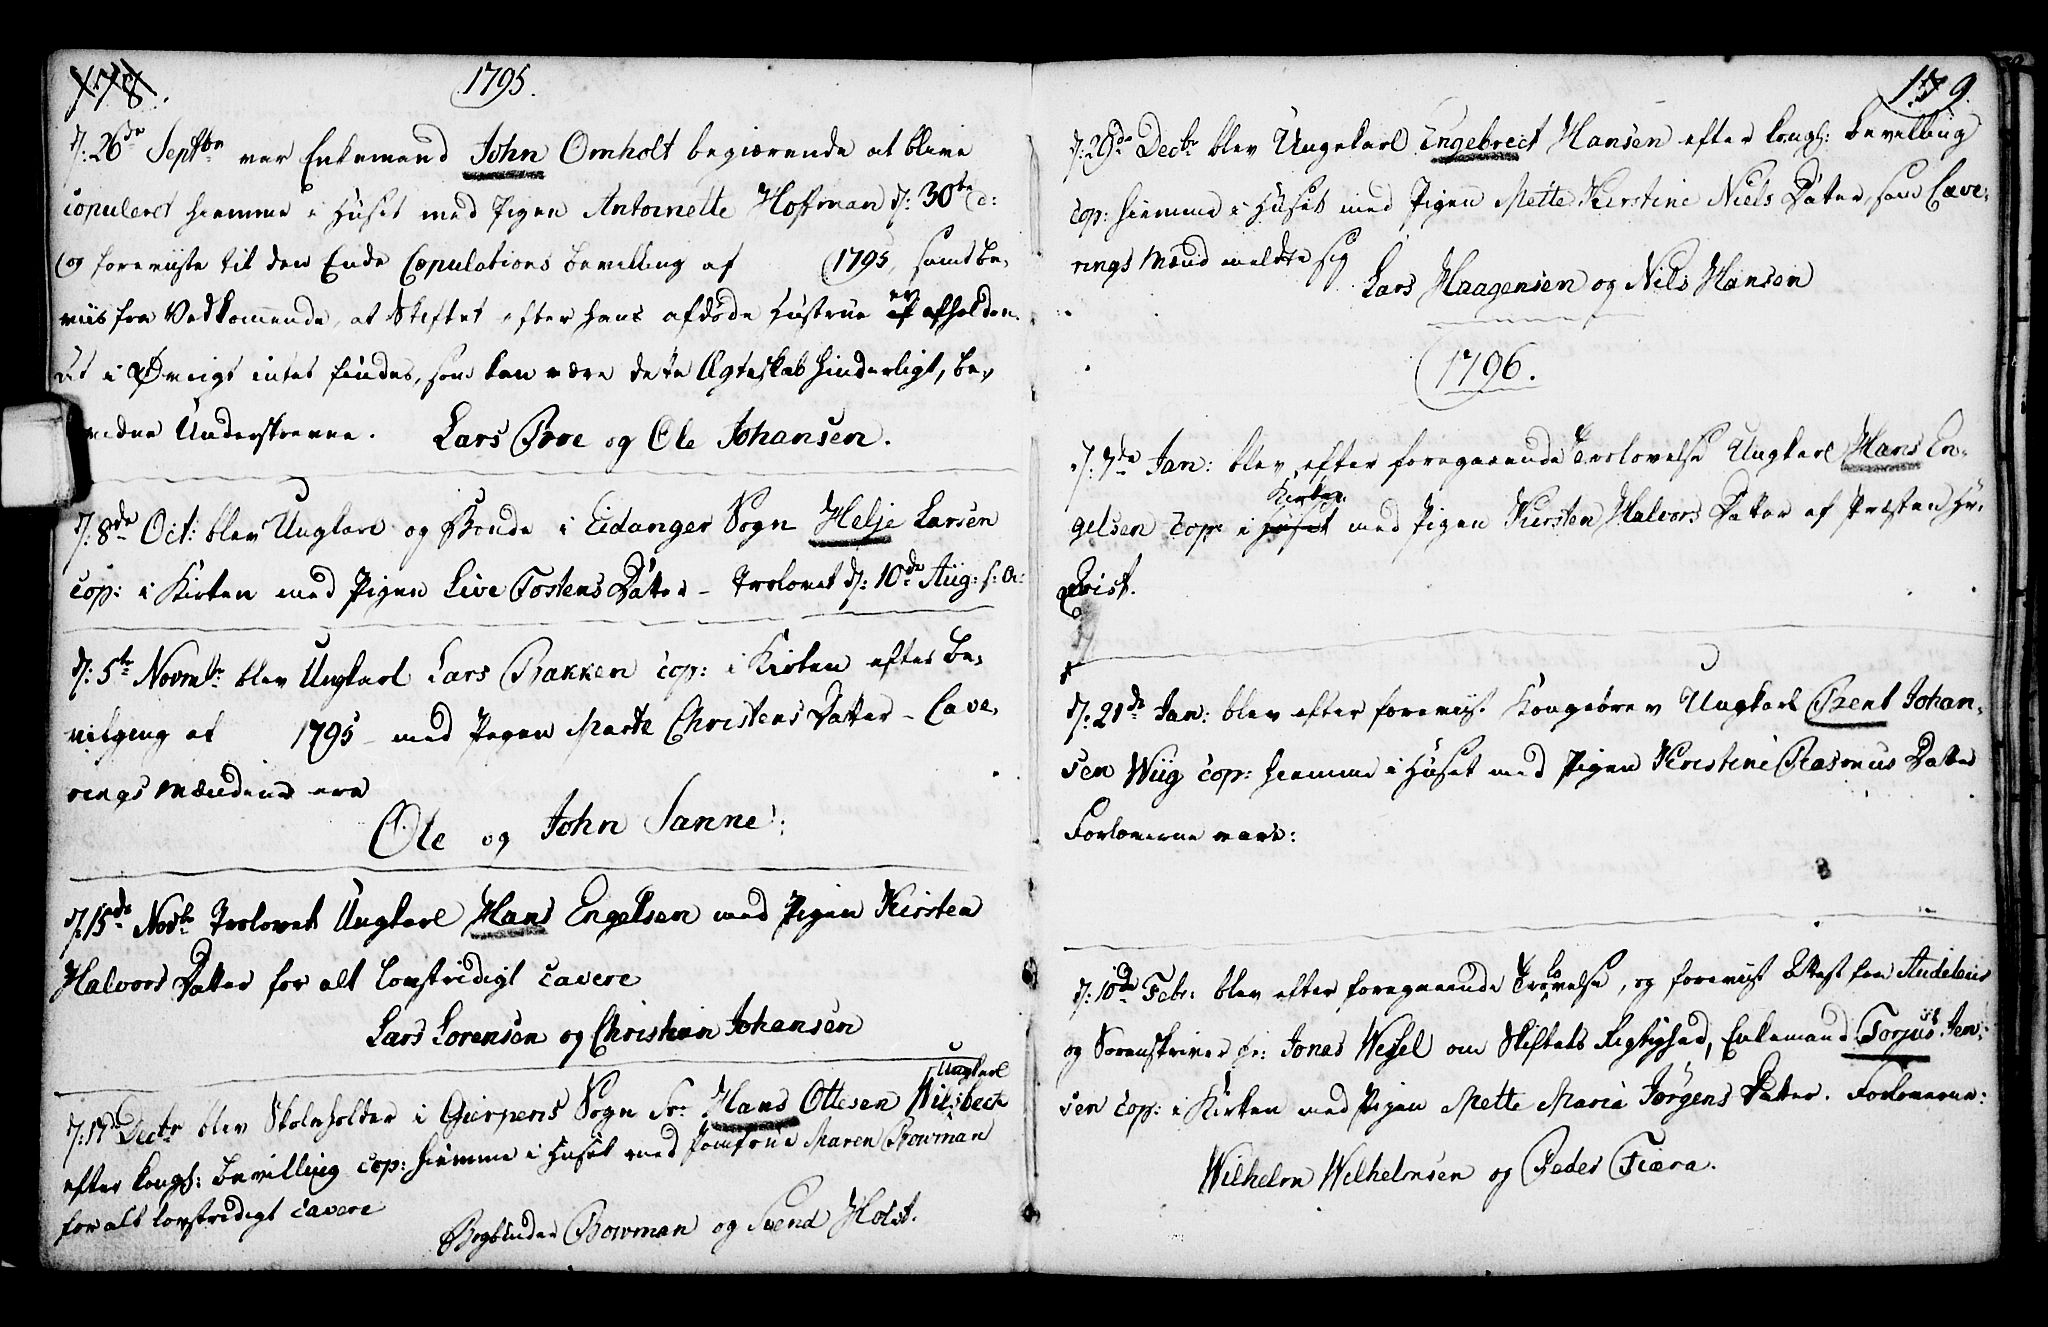 178.
1795.
d: 26de Septbr var Enkemand John Omholt begiærende at blive
copuleret hiemme i Huset med Pigen Antoinette Hofman d: 30te d:
og foreviiste til den Ende Copulations bevilling af 1795, samt be-
viis fra Vedkommende, at Skiftet efter hans afdøde Hustrue er afholden.
At i Øvrigt intet findes, som kan være dette Ægteskab hinderligt, be-
vidne Underskrevne. Lars Broe og Ole Johansen.
d: 8de Oct: blev Ungkarl og Bonde i Eidanger Sogn Helje Larsen
cop: i Kirken med Pigen Live Tostens Datter - Trolovet d: 10de Aug: s: A:
d: 5te Novmbr blev Ungkarl Lars Bakken cop: i Kirken efter Be-
vilgning af 1795 - med Pigen Marte Christens Datter - Cave-
rings Mændene ere
Ole og John Sanne:
d: 15de Novbr Trolovet Ungkarl Hans Engelsen med Pigen Kirsten
Halvors Datter for alt lovstridigt cavere
Lars Lorensen og Christian Johansen
d: 17de Decbr blev Skoleholder i Gierpens Sogn Sr: Hans Ottesen Ungkarl Wilsbech
efter kongl: bevilling cop: hiemme i Huset med Jomfrue Maren Bowman
for alt lovstridigt cavere
Bogbinder Bowman og Svend Holst.
179.
d: 29de Decbr blev Ungekarl Engebrect Hansen efter kongl: bevilling
cop: hiemme i Huset med Pigen Mette Kierstine Niels Datter, som Cave-
rings Mænd meldte sig
Lars Haagensen og Nils Hansen
1796.
d: 7de Jan: blev efter foregaaende Trolovelse Ungkarl Hans En-
gelsen cop: i Huset Kirken med Pigen Kiersten Halvors Datter af Præsten Hr.
Qvist.
d: 21de Jan: blev efter foreviist Kongebrev Ungkarl Bent Johan-
sen Wiig cop: hiemme i Huset med Pigen Kirstine Rasmus Datter
Forloverne vare:
d: 10de Febr: blev efter foregaaende Trolovelse, og foreviist Attest fra Auditeur
og Sorenskriver Hr: Jonas Wessel om Skiftets Rigtighed, Enkemand Torjus Jen-
sen cop: i Kirken med Pigen Mette Maria Jørgens Datter. Forloverne:
Wilhelm Wilhelmsen og Peder Fiære.